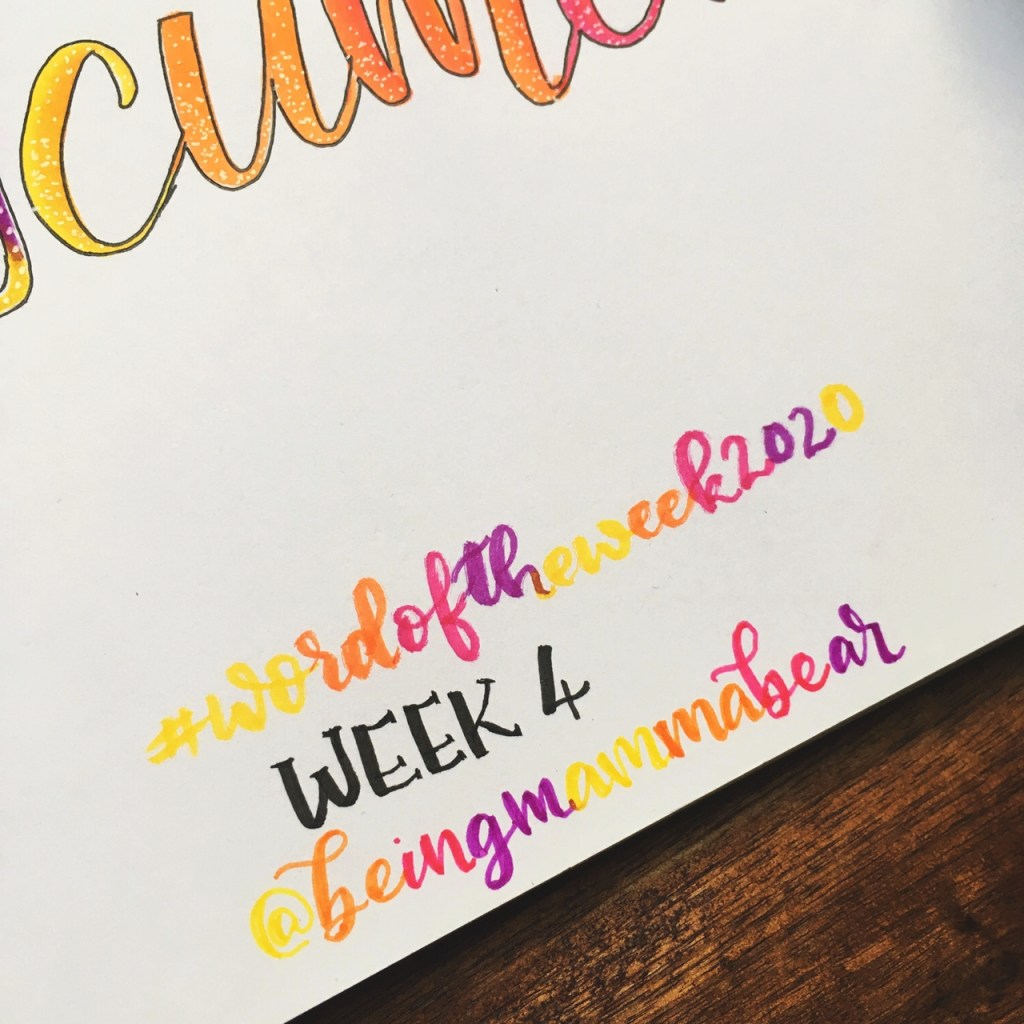 #wordoftheweek2020
WEEK 4
@beingmammabear